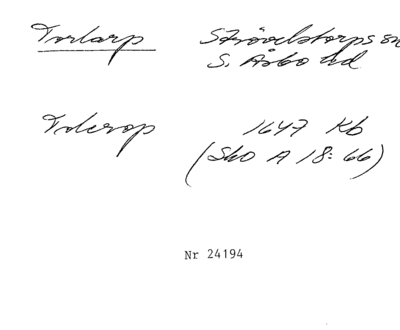 Torlarp Strövelstorps sn
S. Åsbo hd
Tolerop 1647 Kb
(Sko A 18: 66)
Nr 24194